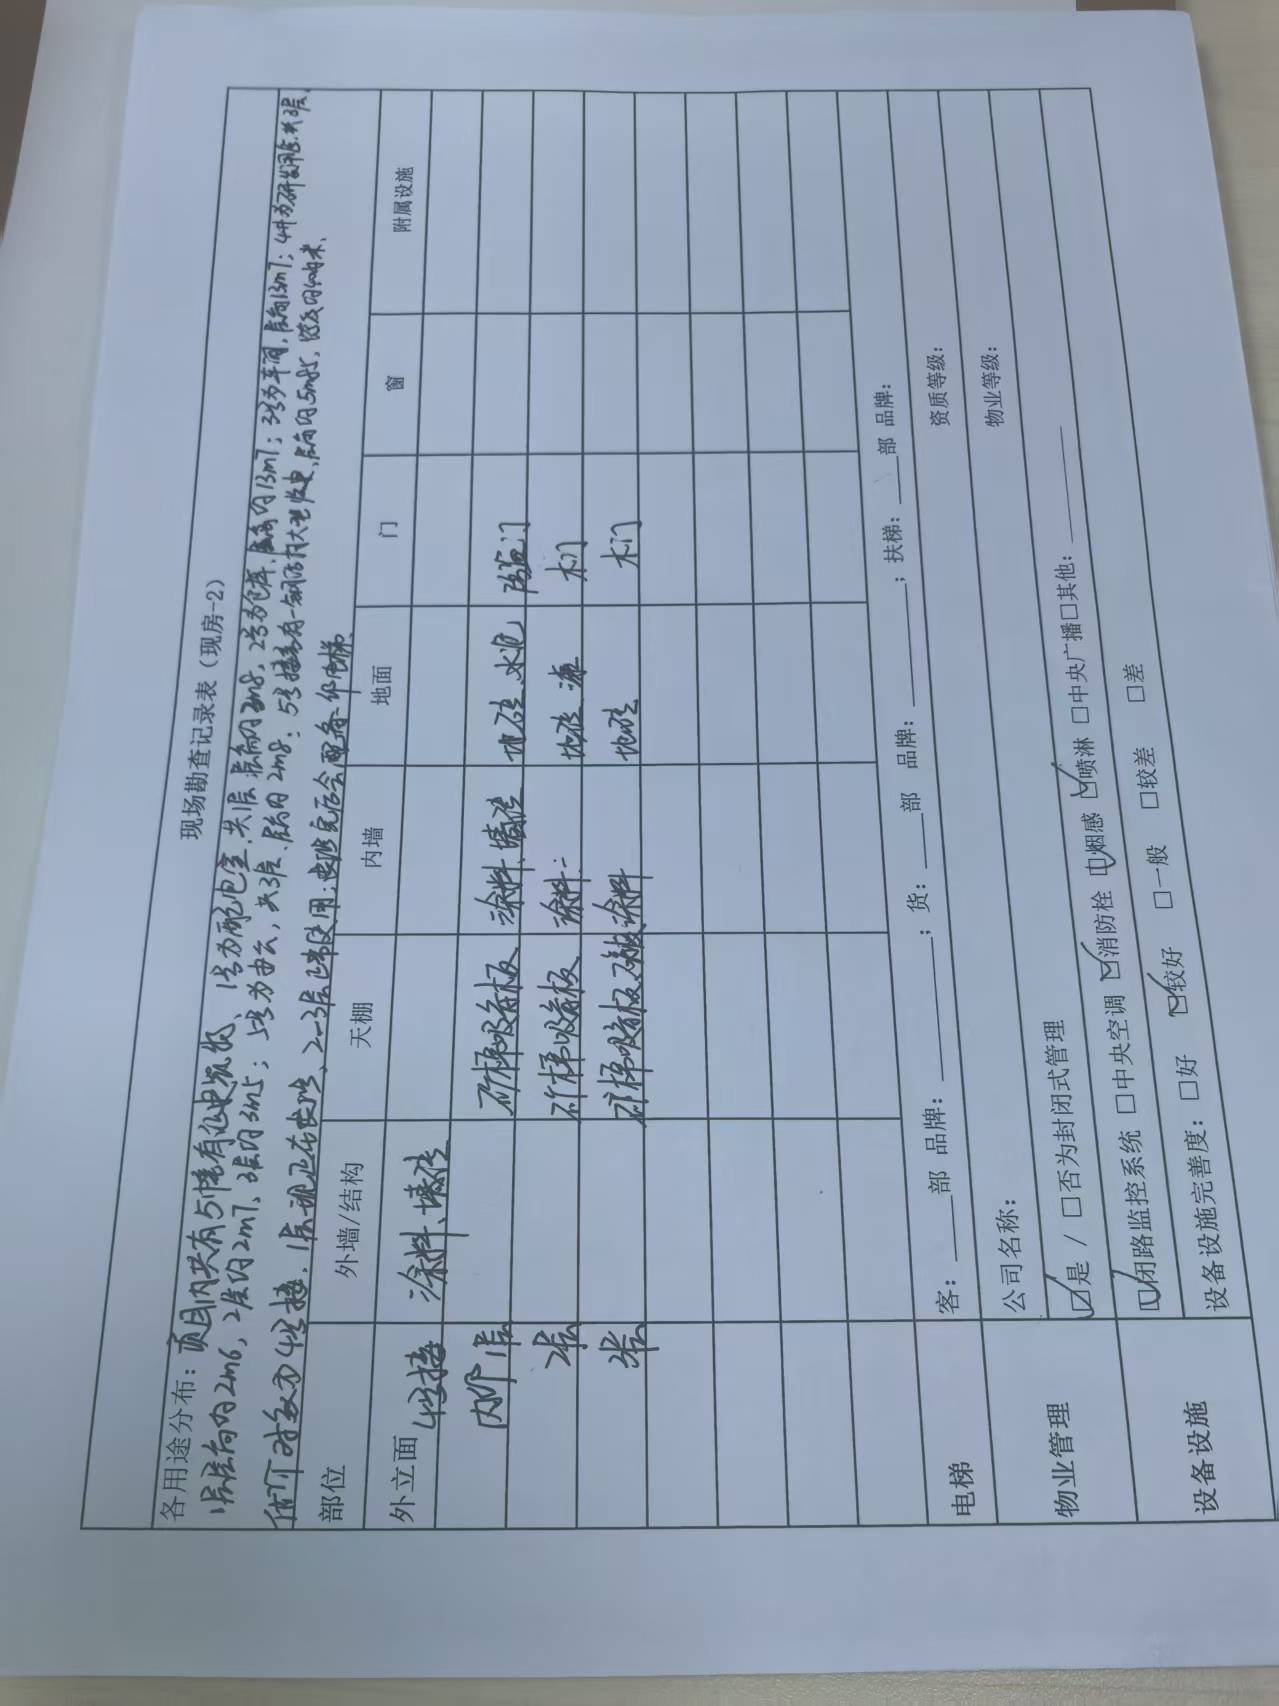 现场勘查记录表（现房-2）
各用途分布：项目内共有5幢有证建筑物、1号为配电室,共1层,层高约3m8,2号为仓库,层高约13m7；3号为车间,层高13m7；4#为研发用房.共3层,
1层层高约2m6,2层约2m7、3层约3m5；5号为办公,共3层、层高约2m8；5号楼旁有一钢结构大型收处,层高约5m85,
估价对象为4号楼,1层现正在装修、2-3层正常使用；装修完后会配备一部电梯
部位 外墙/结构 天棚 内墙 地面 门 窗 附属设施
外立面 4号楼 涂料、墙砖
内部 1层 矿棉吸音板 涂料、墙砖 地砖、水泥 防盗门
2层 矿棉吸音板 涂料 地砖 木门
3层 矿棉吸音板 涂料 地砖 木门
电梯 客：____部 品牌：________；货：____部 品牌：________；扶梯：____部 品牌：
物业管理 公司名称： 资质等级：
☑是 / □否为封闭式管理 物业等级：
设备设施 ☑闭路监控系统 □中央空调 ☑消防栓 ☑烟感 ☑喷淋 □中央广播□其他：________
设备设施完善度：□好 ☑较好 □一般 □较差 □差